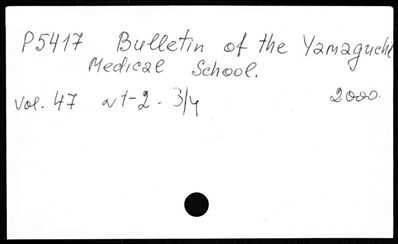 P5417 Bulletin of the Yamaguchi
Medical School.
vol. 47 N1-2 - 3/4 2000.